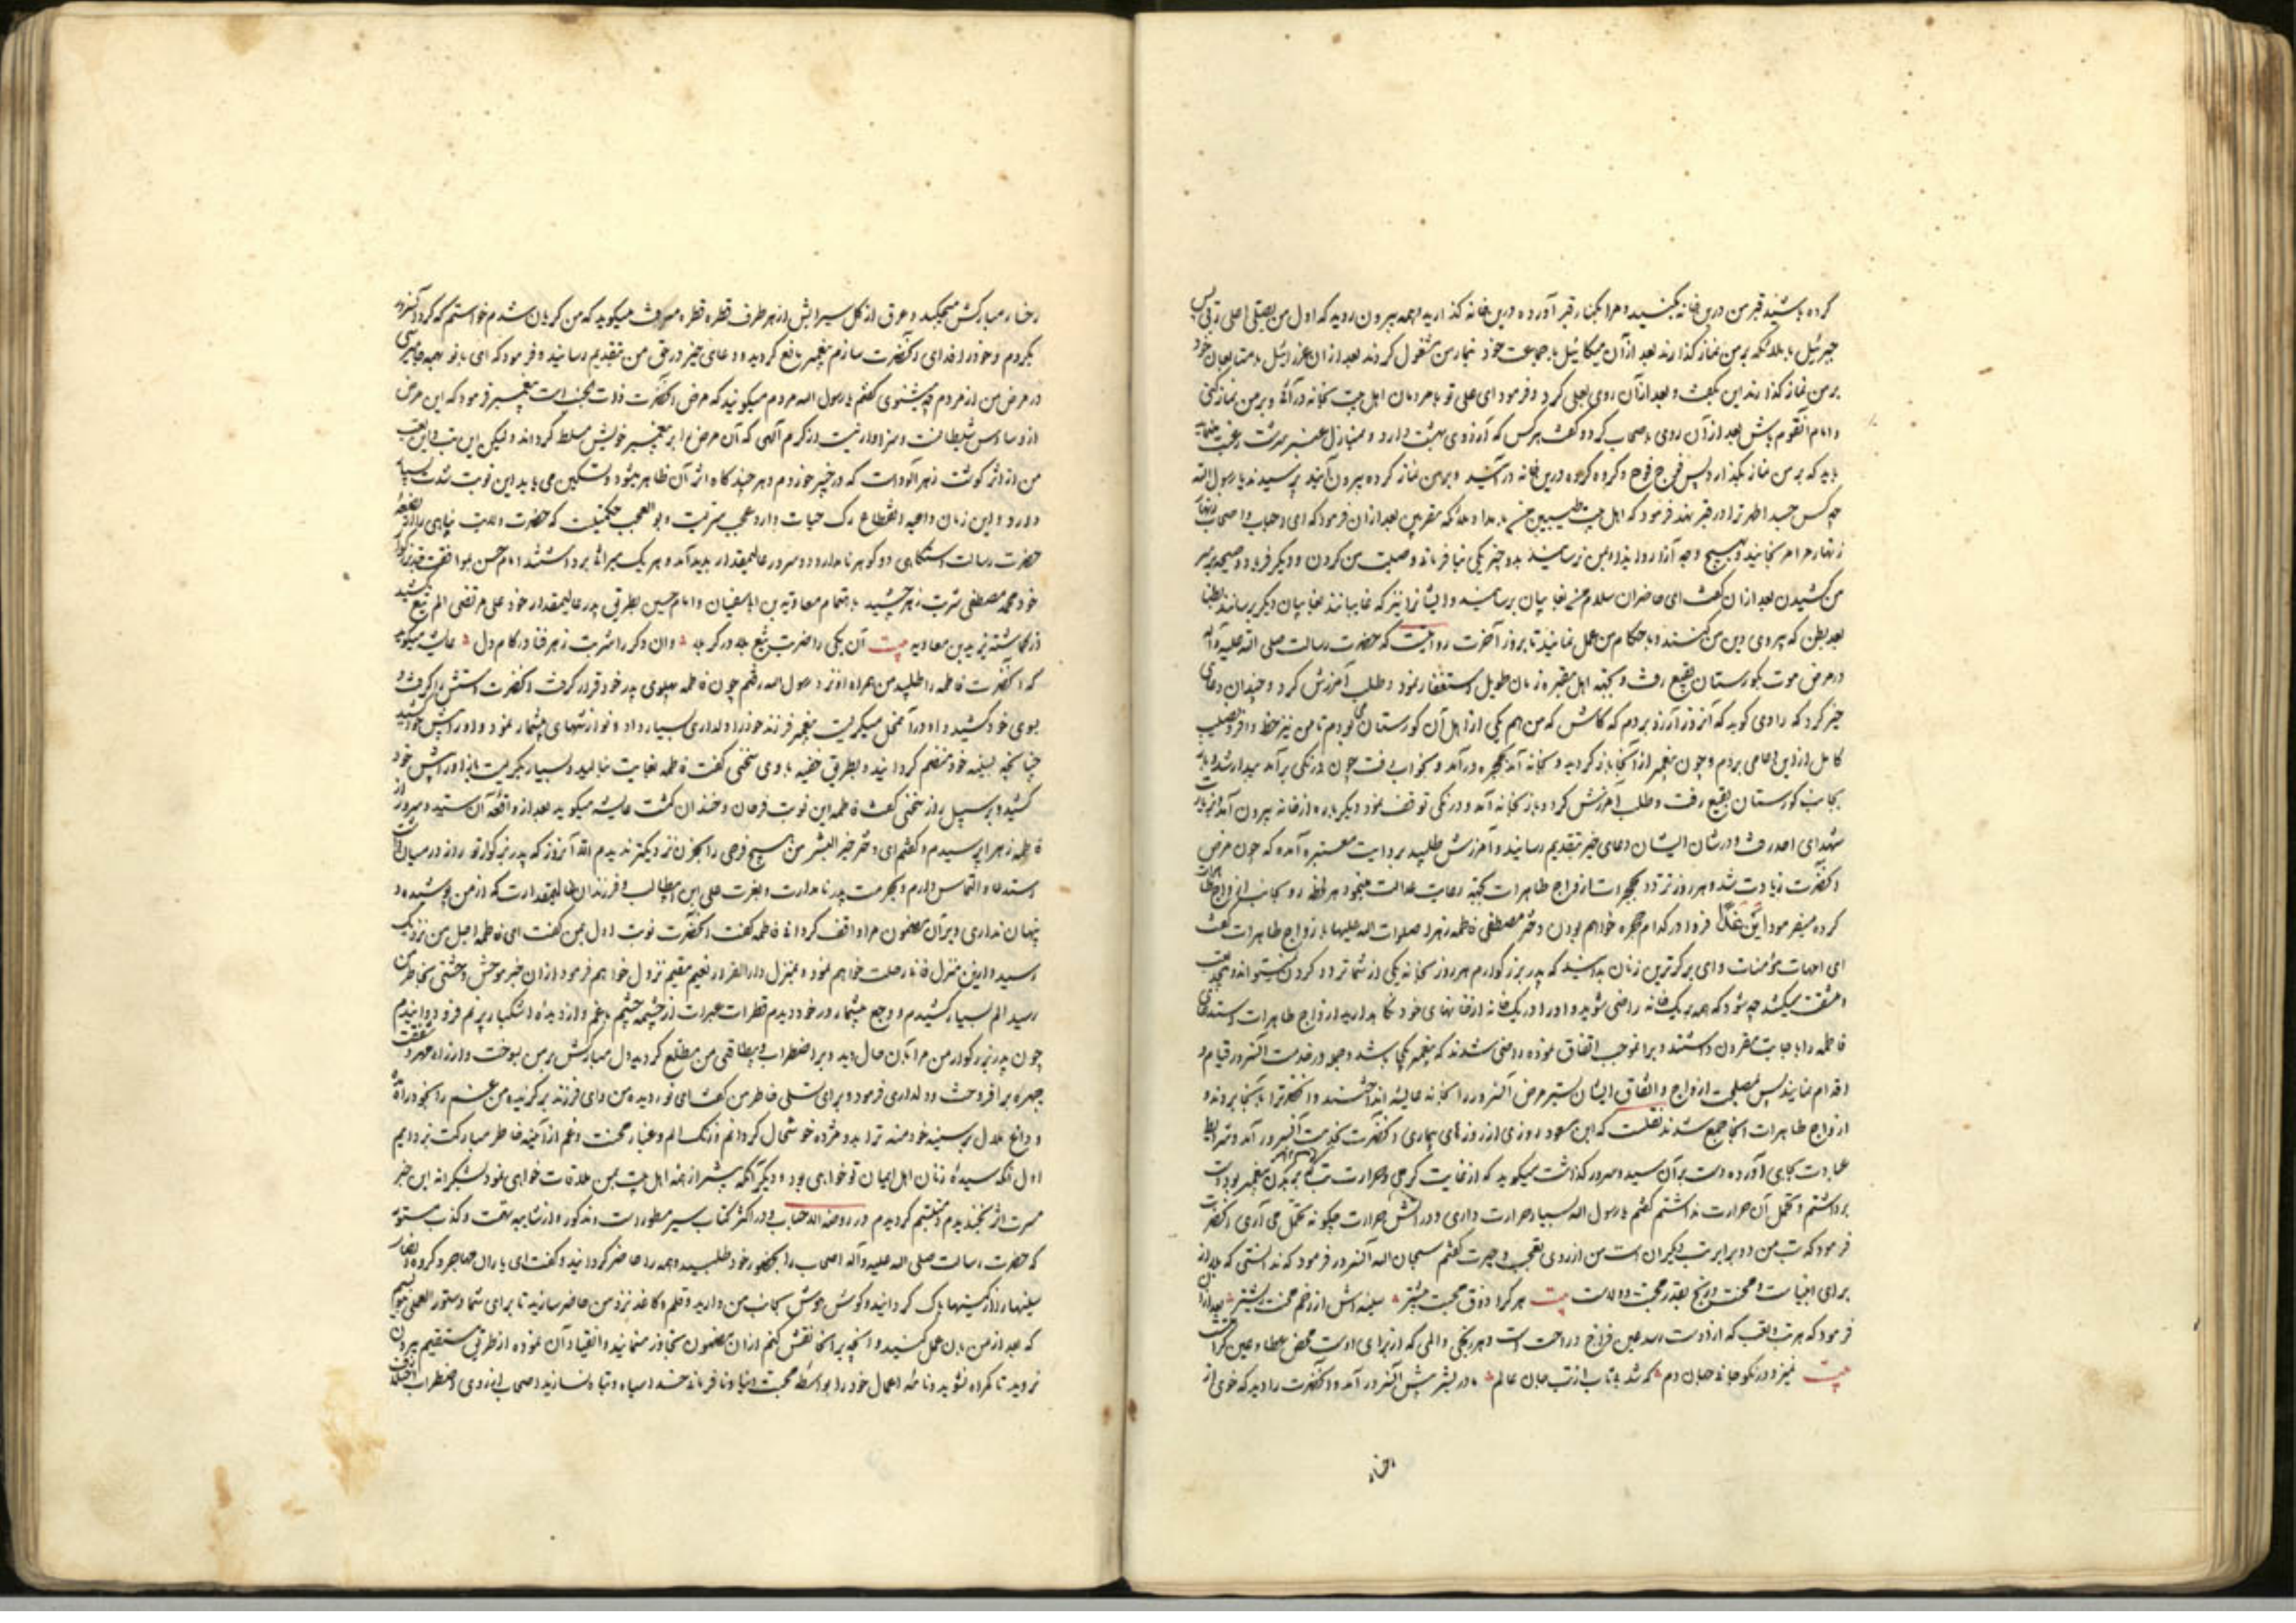 کرده باشید قبر من درین خانه بکنید و مرا بکنار قبر آورده درین خانه گذارید و همه بیرون روید که اول من یصلی علی ربی پس
جبرئیل با ملائکه بر من نماز گذارند بعد از آن میکائیل با جماعت خود بنماز من مشغول گردند بعد از ان عزرائیل با متابعان خود
بر من نماز گذارند این بگفت و بعد از آن روی بعلی کرد و فرمود ای علی تو با مردمان اهل بیت بخانه در آئی و بر من نماز کنی
و امام آنقوم باش بعد از آن روی باصحاب کرد و گفت هر کس که آرزوی بهشت دارد و بمنازل عنبر سرشت رغبت
باید که بر من نماز بگذارد پس فوج فوج و گروه گروه درین خانه در آئید و بر من نماز کرده بیرون آئید پرسیدند یا رسول الله
چه کس جسد اطهر ترا در قبر نهد فرمود که اهل بیت طیبین من با مداد ملائکه مقربین بعد از ان فرمود که ای احباب و اصحاب
زنهار مرا مرنجانید و بهیچ وجه آزار روا مدارید بمن نرسانید
من کشیدن بعد از ان گفت ای حاضران سلام من بغایبان برسانید و ایشان نیز که غایبانند بغایبان دیگر برسانند بطنا
بعد بطن که پیروی دین من کنند و باحکام من عمل نمایند تا بروز آخرت روایتست که حضرت رسالت صلی الله علیه و آله
در مرض موت بگورستان بقیع رفت و بجهة اهل مقبره زمان طویل استغفار نمود و طلب آمرزش کرد و چندان دعای
خیر کرد که راوی گوید که آنروز آرزو بردم که کاش که من هم یکی از اهل آن گورستان می بودم تا من نیز حظ وافر و نصیب
کامل ازین دعا می بردم و چون پیغمبر از آنجا باز گردید و بخانه آمد بحجره در آمد و بخواب رفت چون درنگی بر آمد بیدار شد باز
بجانب گورستان بقیع رفت و طلب آمرزش کرد و باز بخانه آمد و درنگی توقف نمود دیگر باره از خانه بیرون آمد
شهدای احد رفت و در شان ایشان دعای خیر بتقدیم رسانید و آمرزش طلبید بروایت معتبره آمده که چون مرض
آنحضرت زیادت شد و هر روز تردد بحجرات ازواج طاهرات بجهة رعایت عدالت مینمود هر لحظه رو بجانب ازواج
کرده میفرمود این غدا فردا در کدام حجره خواهم بودن دختر مصطفی فاطمه زهرا صلوات الله علیها با ازواج طاهرات گفت
ای امهات مؤمنات و ای بزرگترین زنان بدانید که پدر بزرگوارم هر روز بخانه یکی از شما تردد کردن نمیتواند
مشقت میکشد چه شود که همه بیک خانه راضی شوید و او را در یک خانه از خانهای خود نگاه دارید ازواج طاهرات استدعای
فاطمه را باجابت مقرون داشتند و برا نموجب اتفاق نموده راضی شدند که پیغمبر یکجا باشد و همه در خدمت آنسرور قیام و
اقدام نمایند پس بمصلحت ازواج و اتفاق ایشان بستر مرض آنسرور را بخانه عایشه انداختند و آنحضرترا بآنجا بردند و
ازواج طاهرات آنجا جمع شدند نقلست که ابن مسعود روزی از روزهای بیماری آنحضرت بخدمت آنسرور آمد و شرایط
عیادت بجای آورده دست بر آن سید و سرور گذاشت میگوید که از غایت گرمی و حرارت تب که در بدن پیغمبر بود دست
برداشتم و تحمل آن حرارت نداشتم گفتم یا رسول الله بسیار حرارت داری و در آتش حرارت چگونه تحمل می آری آنحضرت
فرمود که تب من دو برابر تب دیگران است من از روی تعجب و حیرت گفتم سبحان الله آنسرور فرمود که ندانستی که بلا از
برای انبیاست و محنت و رنج بقدر محبت و ولاست بیت هر کرا ذوق محبت بیشتر سینه اش از زخم محنت ریشتر بعد از ان
فرمود که هر تب و تعب که از دوست رسد عین فرح و راحت است و هر رنجی و المی که از برای اوست محض عطا و عین کرامت
بیت تیز و در نکو جاند جهان دم که شد بیتاب از تب جان عالم مادر بشر پیش آنسرور آمد و آنحضرت را دید که خوی از
رخسار
رخسار مبارکش میچکید و عرق از گل سیرابش از هر طرف قطره قطره میریخت میگوید که من گریان شدم خواستم که گرد آنسرور
بگردم و خود را فدای آنحضرت سازم پیغمبر مانع گردید و دعای خیر در حق من بتقدیم رسانید و فرمود که ای مادر بشر چه میپرسی
در مرض من از مردم چه میشنوی گفتم یا رسول الله مردم میگویند که مرض آنحضرت ذات الجنب است پیغمبر فرمود که این مرض
از وساوس شیطانست و سزاوار نیست در کرم آلهی که آن مرض را بر پیغمبر خویش مسلط گرداند ولیکن این تب و این تعب
من از اثر گوشت زهر آلود است که در خیبر خوردم و هر چند گاه اثر آن ظاهر میشود و تسکین می یابد این نوبت شدت بسیار
دارد و این زمان داعیه انقطاع رگ حیات دارد عجب سریست و بو العجب حکمتیست که حضرت ولایت پناهی را از
حضرت رسالت دستگاهی دو گوهر نامدار و دو سرور عالیمقدار پدید آمد و هر یک میراثی برداشتند امام حسن بموافقت جد بزرگوار
خود محمد مصطفی شربت زهر چشید باهتمام معاویه بن ابا سفیان و امام حسین بطریق پدر عالیمقدار خود علی مرتضی الم تیغ کشید
از گماشته یزید بن معاویه بیت آن یکی را ضربت تیغ بلا در کربلا وان دگر را شربت زهر فنا در کام دل عایشه میگوید
که آنحضرت فاطمه را طلبید من همراه او نزد رسول الله رفتم چون فاطمه بپهلوی پدر خود قرار گرفت آنحضرت دستش را گرفت و
بسوی خود کشید و او در آن محل میگریست پیغمبر فرزند خود را دلداری بسیار داد و نوازشهای بیشمار نمود و او را پیش خود کشید
چنانکه بسینه خود منضم گردانید و بطریق خفیه با وی سخنی گفت فاطمه بغایت بنالید و بسیار بگریست باز او را پیش خود
کشید و بر سبیل راز سخنی گفت فاطمه این نوبت فرحان و خندان گشت عایشه میگوید بعد از واقعه آن سید و سرور از
فاطمه زهرا پرسیدم و گفتم ای دختر خیر البشر من هیچ فرحی را بحزن نزدیکتر ندیدم الا آنروز که پدر بزرگوار تو راز در میان داشت
استدعا و التماس دارم و بحرمت پدر نامدارت و بعزت علی ابن ابیطالب و فرزندان عالیمقدارت که از من پوشیده و
پنهان نداری و بر آن مضمون مرا واقف گردانی فاطمه گفت آنحضرت نوبت اول بمن گفت ای فاطمه اجل من نزدیک
رسید و ازین منزل فنا رحلت خواهم نمود و بمنزل دار القرار و نعیم مقیم نزول خواهم فرمود از ان خبر موحش وحشتی بخاطر من
رسید الم بسیار کشیدم و وجع بیشمار در خود دیدم قطرات عبرات از چشمه چشم پر غم و از دیده اشکبار پر نم فرو دوانیدم
چون پدر بزرگوار من مرا بدان حال دید و بر اضطراب و بیطاقتی من مطلع گردید دل مبارکش بر من بسوخت و از راه مهر و شفقت
چهره بر افروخت و دلداری فرمود و برای تسلی خاطر من گفت ای نور دیده من و ای فرزند برگزیده من غم را بخود راه
و داغ بلا دل بر سینه خود منه ترا بدو مژده خوشحال گردانم و زنگ الم و غبار محنت و غم از آینه خاطر مبارکت بزدایم
اول آنکه سیده زنان اهل ایمان تو خواهی بود و دیگر آنکه پیشتر از همه اهل بیت بمن ملاقات خواهی نمود بشکرانه این خبر
مسرت اثر بخندیدم و متبسم گردیدم در روضه الاحباب و در اکثر کتاب سیر مسطور است و مذکور و از شایبه تهمت و کذب مستور
که حضرت رسالت صلی الله علیه و آله اصحاب را بحضور خود طلبید و همه را حاضر گردانید و گفت ای یاران مهاجر و گروه انصار
سینها را از کینها پاک گردانید و گوش هوش بجانب من دارید و قلم و کاغذ نزد من حاضر سازید تا برای شما دستور العملی بنویسم
که بعد از من بدان عمل کنید و آنچه بر آنجا نقش کنم از ان مضمون تجاوز منمائید و انقیاد آن نموده از طریق مستقیم بیرون
نروید تا گمراه نشوید و نامه اعمال خود را بواسطه محبت دنیا و نافرمانی خدا سیاه و تباه نسازید اصحاب از روی اضطراب